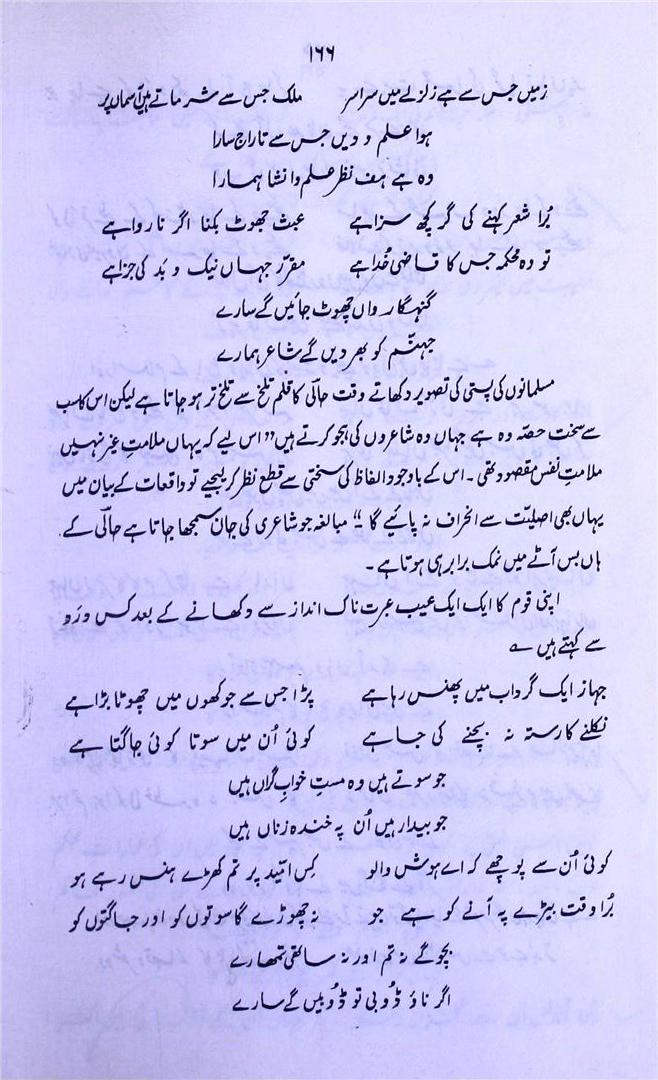 ۱۶۶
زمیں جس سے ہے زلزلے میں سراسر ملک جس سے شرماتے ہیں آسماں پر
ہوا علم و دیں جس سے تاراج سارا
وہ ہے ہف نظر علم و انشا ہمارا
بُرا شعر کہنے کی گر کچھ سزا ہے عبث جھوٹ بکنا اگر ناروا ہے
تو وہ محکمہ جس کا قاضی خُدا ہے مقرّر جہاں نیک و بَد کی جزا ہے
گنہگار واں چھوٹ جائیں گے سارے
جہنّم کو بھر دیں گے شاعر ہمارے
مسلمانوں کی پستی کی تصویر دکھاتے وقت حالؔی کا قلم تلخ سے تلخ تر ہو جاتا ہے لیکن اس کا سب
سے سخت حصّہ وہ ہے جہاں وہ شاعروں کی ہجو کرتے ہیں "اس لیے کہ یہاں ملامتِ غیر نہیں
ملامتِ نفس مقصود تھی۔ اس کے باوجود الفاظ کی سختی سے قطع نظر کر لیجیے تو واقعات کے بیان میں
یہاں بھی اصلیّت سے انحراف نہ پائیے گا۔" مبالغہ جو شاعری کی جان سمجھا جاتا ہے حالؔی کے
ہاں بس آٹے میں نمک برابر ہی ہوتا ہے۔
اپنی قوم کا ایک ایک عیب عبرت ناک انداز سے دکھانے کے بعد کس درد
سے کہتے ہیں ؎
جہاز ایک گرداب میں پھنس رہا ہے پڑا جس سے جوکھوں میں چھوٹا بڑا ہے
نکلنے کا رستہ نہ بچنے کی جا ہے کوئی اُن میں سوتا کوئی جاگتا ہے
جو سوتے ہیں وہ مستِ خوابِ گراں ہیں
جو بیدار ہیں اُن پہ خندہ زناں ہیں
کوئی اُن سے پوچھے کہ اے ہوش والو کِس امّید پر تم کھڑے ہنس رہے ہو
بُرا وقت بیڑے پہ آنے کو ہے جو نہ چھوڑے گا سوتوں کو اور جاگتوں کو
بچو گے نہ تم اور نہ ساتھی تمھارے
اگر ناؤ ڈوبی تو ڈوبیں گے سارے